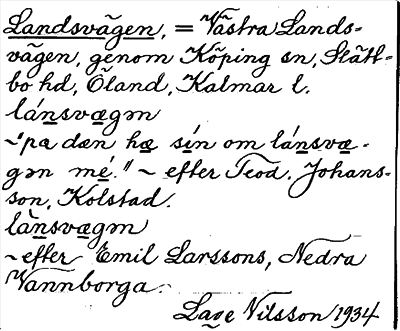 Landsvägen, = Västra Lands-
vägen, genom Köping sn, Slätt-
bo hd, Öland, Kalmar l.
lánsvægən
~"pa dæn hæ sín om lánsvæ-
gən mé." ~ efter Teod. Johans-
son, Kolstad.
lànsvægən
~ efter Emil Larssons, Nedra
Vannborga.
Lage Nilsson 1934